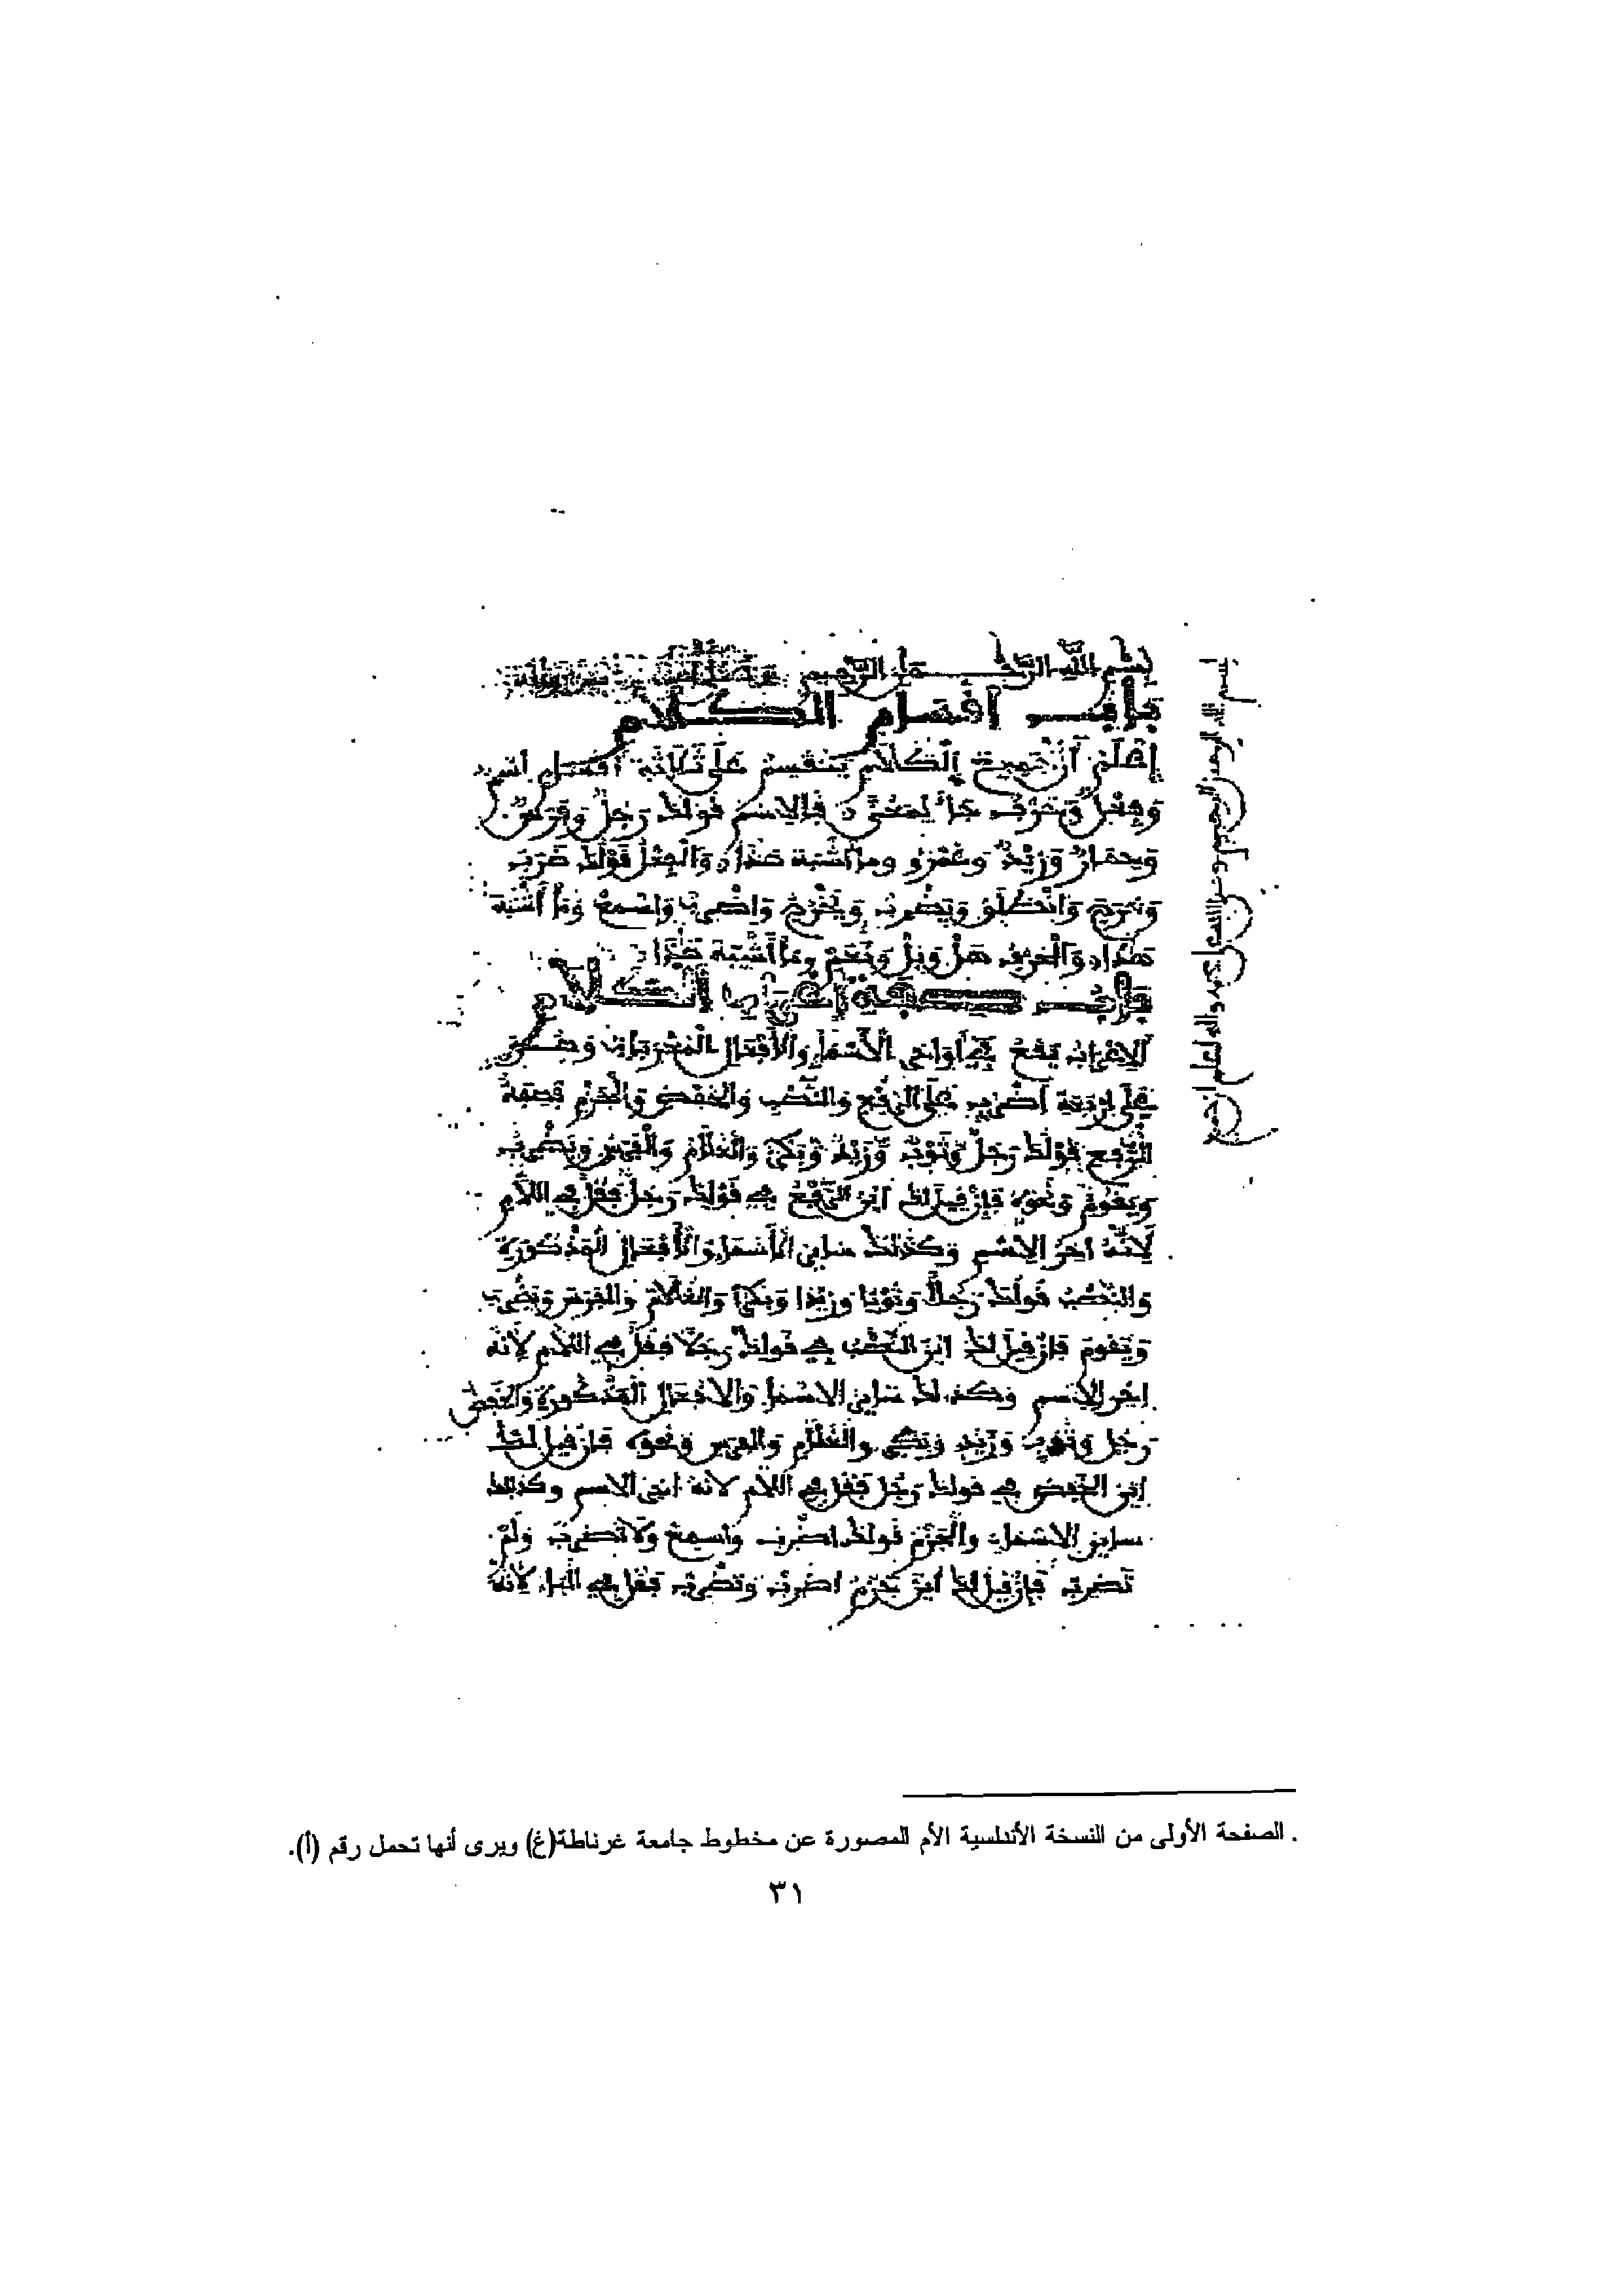 بِسْمِ اللَّهِ الرَّحْمَنِ الرَّحِيمِ
باب أقسام الكلام
اِعْلَمْ أَنَّ جَمِيعَ الْكَلَامِ يَنْقَسِمُ عَلَى ثَلَاثَةِ أَقْسَامٍ اسْمٍ
وَفِعْلٍ وَحَرْفٍ جَاءَ لِمَعْنًى فَالِاسْمُ قَوْلُكَ رَجُلٌ وَفَرَسٌ
وَحِمَارٌ وَزَيْدٌ وَعَمْرٌو وما أَشْبَهَ هَذَا وَالْفِعْلُ قَوْلُكَ ضَرَبَ
وَخَرَجَ وَانْطَلَقَ وَيَضْرِبُ وَيَخْرُجُ وَاضْرِبْ وَاسْمَعْ وَمَا أَشْبَهَ
هَذَا وَالْحَرْفُ هَلْ وَبَلْ وَنَعَمْ وَمَا أَشْبَهَ هَذَا
باب الكلام
الْإِعْرَابُ يَقَعُ فِي أَوَاخِرِ الْأَسْمَاءِ وَالْأَفْعَالِ الْمُعْرَبَاتِ وَهُوَ
عَلَى أَرْبَعَةِ أَضْرُبٍ عَلَى الرَّفْعِ وَالنَّصْبِ وَالْخَفْضِ وَالْجَزْمِ فَصِفَةُ
الرَّفْعِ قَوْلُكَ رَجُلٌ وَثَوْبٌ وَزَيْدٌ وَبَكْرٌ وَالْغُلَامُ وَالْفَرَسُ وَيَضْرِبُ
وَيَقُومُ وَنَحْوُهُ فَإِنْ قِيلَ لَكَ أَيْنَ الرَّفْعُ فِي قَوْلِكَ رَجُلٌ فَقُلْ فِي اللَّامِ
لِأَنَّهُ آخِرُ الِاسْمِ وَكَذَلِكَ سَايِرُ الْأَسْمَاءِ وَالْأَفْعَالِ الْمَذْكُورَةِ
وَالنَّصْبُ قَوْلُكَ رَجُلًا وَثَوْبًا وَزَيْدًا وَبَكْرًا وَالْغُلَامَ وَالْفَرَسَ وَيَضْرِبَ
وَيَقُومَ فَإِنْ قِيلَ لَكَ أَيْنَ النَّصْبُ فِي قَوْلِكَ رَجُلًا فَقُلْ فِي اللَّامِ لِأَنَّهُ
آخِرُ الِاسْمِ وَكَذَلِكَ سَايِرُ الْأَسْمَاءِ وَالْأَفْعَالِ الْمَذْكُورَةِ وَالْخَفْضُ
رَجُلٍ وَثَوْبٍ وَزَيْدٍ وَبَكْرٍ وَالْغُلَامِ وَالْفَرَسِ وَنَحْوِهِ فَإِنْ قِيلَ لَكَ
أَيْنَ الْخَفْضُ فِي قَوْلِكَ رَجُلٍ فَقُلْ فِي اللَّامِ لِأَنَّهُ آخِرُ الِاسْمِ وَكَذَلِكَ
سَايِرُ الْأَسْمَاءِ وَالْجَزْمُ قَوْلُكَ اضْرِبْ وَاسْمَعْ وَلَا تَضْرِبْ وَلَمْ
تَضْرِبْ فَإِنْ قِيلَ لَكَ أَيْنَ جَزْمُ اضْرِبْ وَتَضْرِبْ فَقُلْ فِي الْبَاءِ لِأَنَّهُ
بسم الله الرحمن الرحيم
. الصفحة الأولى من النسخة الأندلسية الأم المصورة عن مخطوط جامعة غرناطة(غ) ويرى أنها تحمل رقم (أ).
٣١